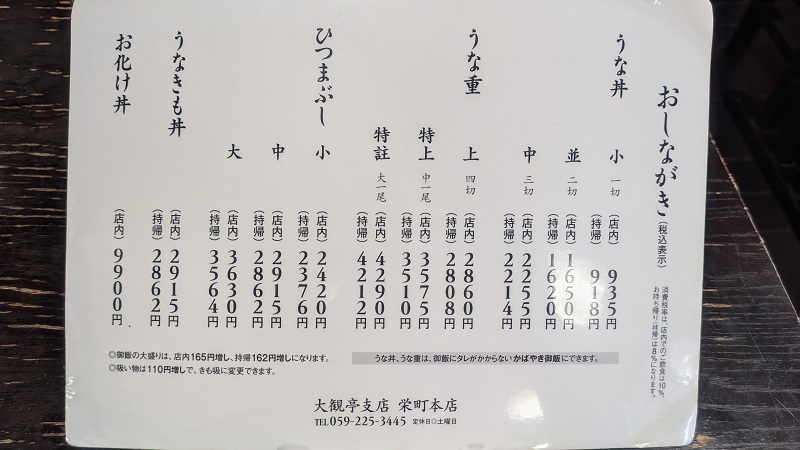 おしながき(税込表示)
消費税率は、店内でのご飲食は10%、
お持ち帰り(持帰)は8%になります。
うな丼
小 一切 (店内) 935円
(持帰) 918円
並 二切 (店内) 1650円
(持帰) 1620円
中 三切 (店内) 2255円
(持帰) 2214円
うな重
上 四切 (店内) 2860円
(持帰) 2808円
特上 中一尾 (店内) 3575円
(持帰) 3510円
特註 大一尾 (店内) 4290円
(持帰) 4212円
ひつまぶし
小 (店内) 2420円
(持帰) 2376円
中 (店内) 2915円
(持帰) 2862円
大 (店内) 3630円
(持帰) 3564円
うなきも丼
(店内) 2915円
(持帰) 2862円
お化け丼
(店内) 9900円
うな丼、うな重は、御飯にタレがかからないかばやき御飯にできます。
◎御飯の大盛りは、店内165円増し、持帰162円増しになります。
◎吸い物は110円増しで、きも吸に変更できます。
大観亭支店 栄町本店
TEL 059-225-3445 定休日◎土曜日